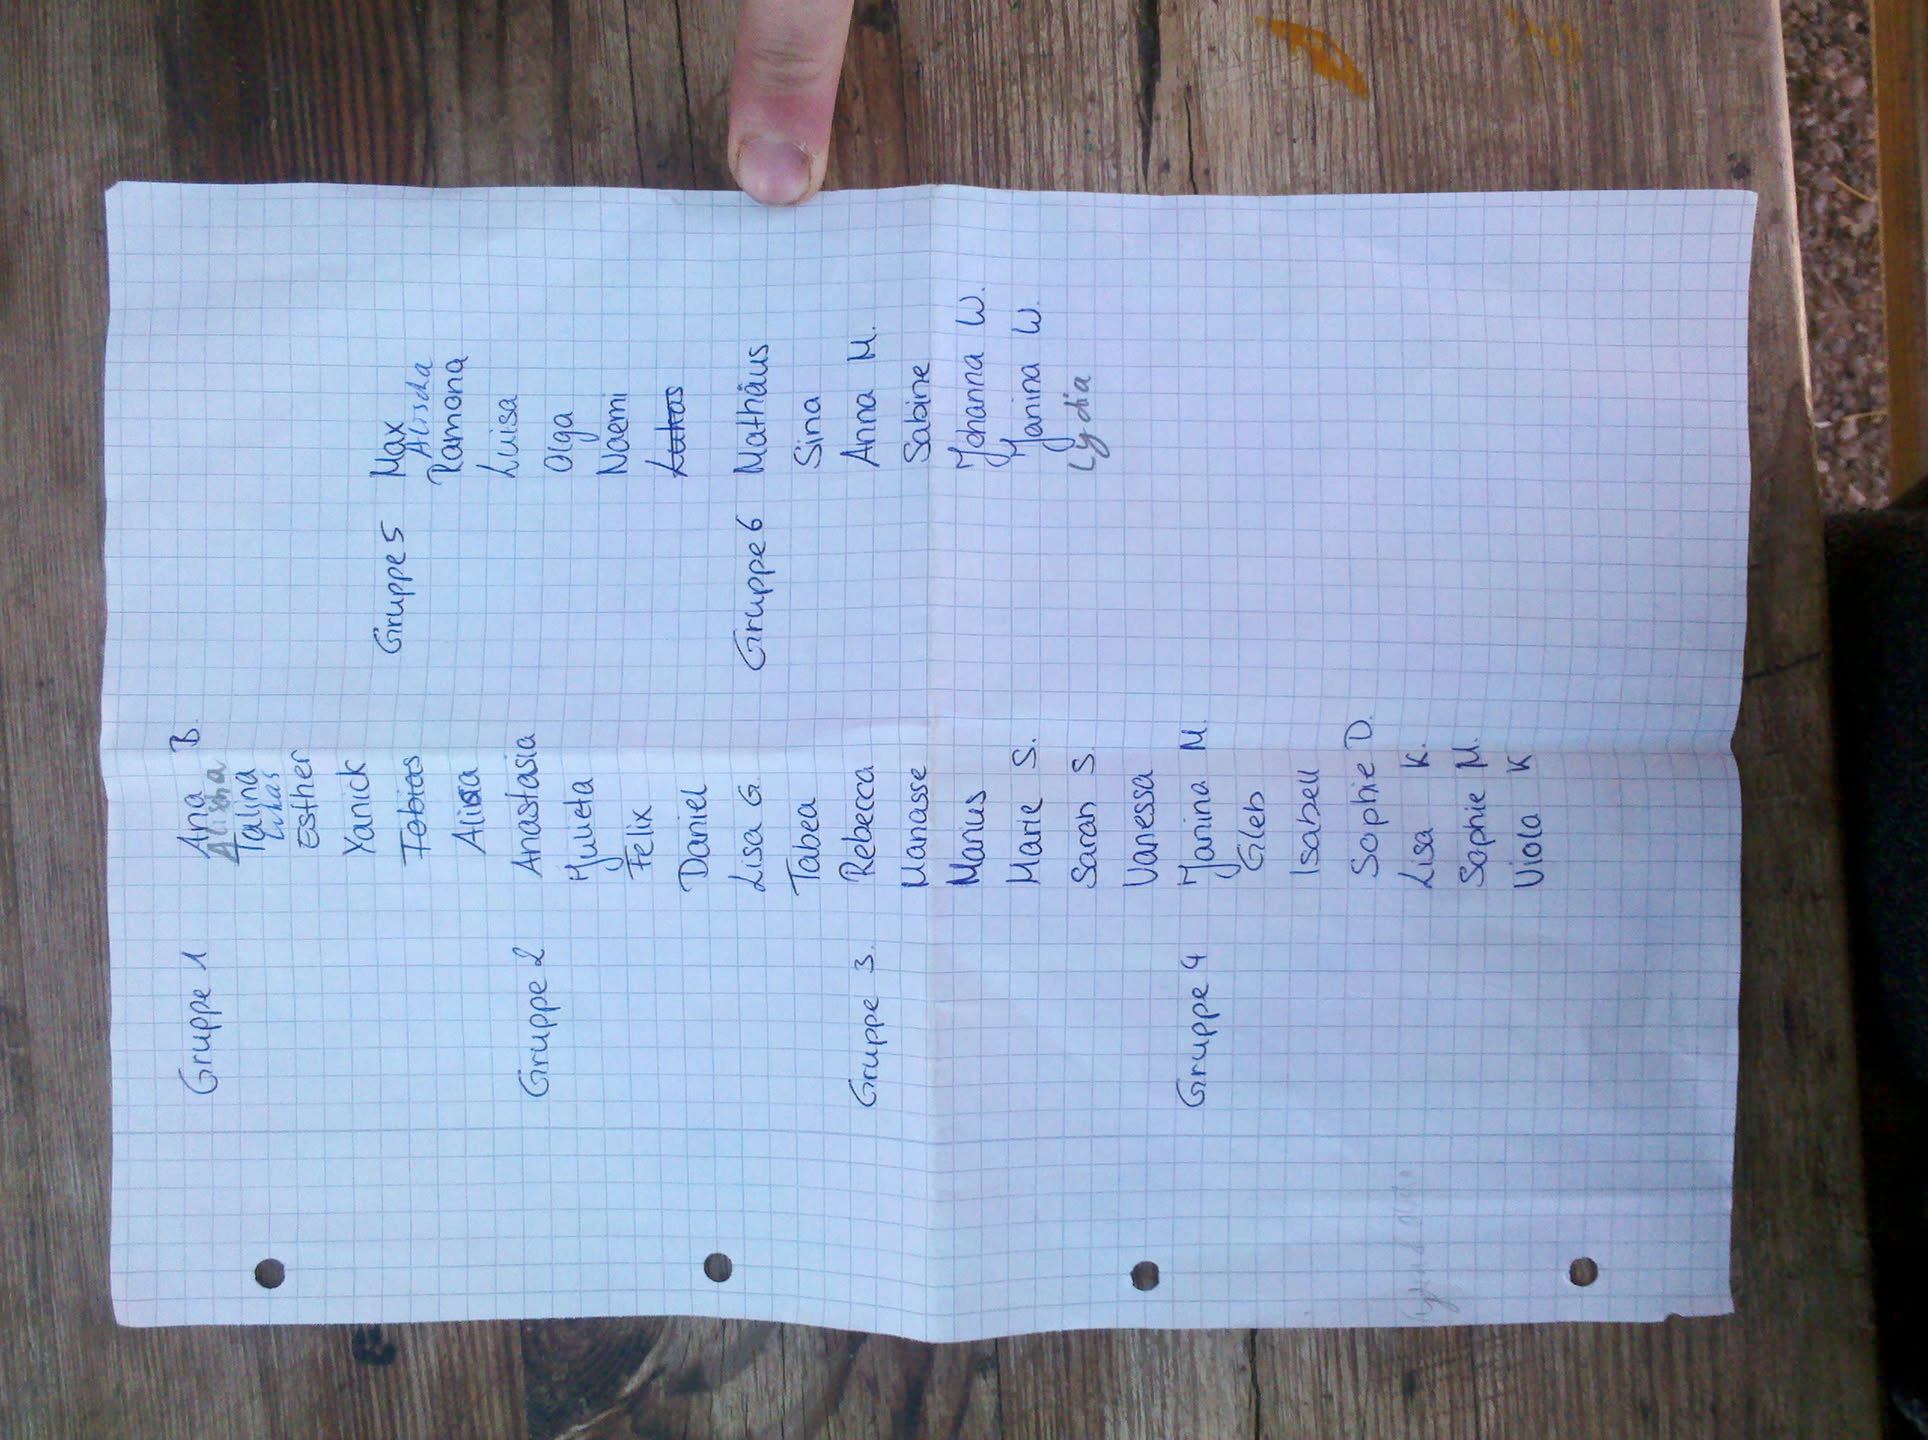 Gruppe 1 Ana B.
Alisha
Talina
Lukas
Esther
Yanick
Tobias
Alissa
Gruppe 2 Anastasia
Julieta
Felix
Daniel
Lisa G.
Tabea
Gruppe 3. Rebecca
Manasse
Marius
Marie S.
Sarah S.
Vanessa
Gruppe 4 Janina M.
Gleb
Isabell
Sophie D.
Lisa K.
Sophie M.
Viola K
Gruppe 5 Max
Alischa
Ramona
Luisa
Olga
Naemi
Lukas
Gruppe 6 Mathäus
Sina
Anna M.
Sabine
Johanna W.
Janina W.
Lydia